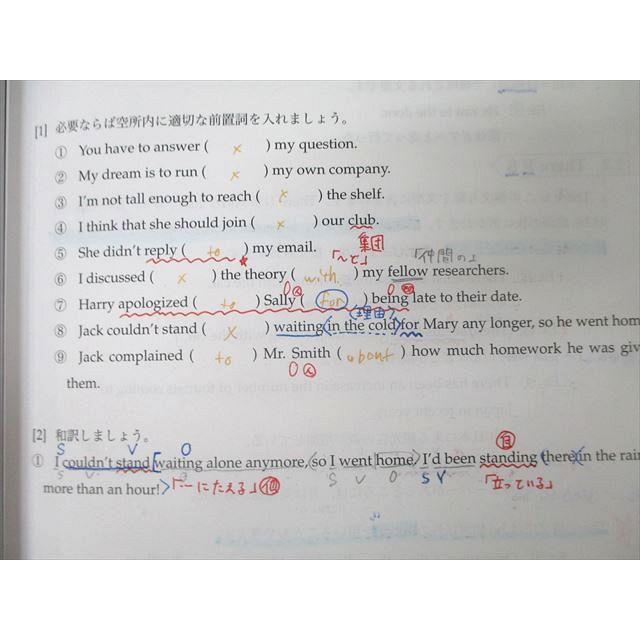 [1] 必要ならば空所内に適切な前置詞を入れましょう。
① You have to answer ( × ) my question.
② My dream is to run ( × ) my own company.
③ I'm not tall enough to reach ( × ) the shelf.
④ I think that she should join ( × ) our club.
集団
⑤ She didn't reply ( to ) my email.
「〜と」 「仲間の」
⑥ I discussed ( × ) the theory ( with ) my fellow researchers.
⑦ Harry apologized ( to ) Sally ( for ) being late to their date.
〈理由〉
⑧ Jack couldn't stand ( × ) waiting (in the cold) for Mary any longer, so he went hom
⑨ Jack complained ( to ) Mr. Smith ( about ) how much homework he was giv
O人
them.
[2] 和訳しましょう。
S V O 自
① I couldn't stand [waiting alone anymore, (so I went home) I'd been standing (there) in the rain
S V O S V O S V
more than an hour!〉「…にたえる」他 「立っている」